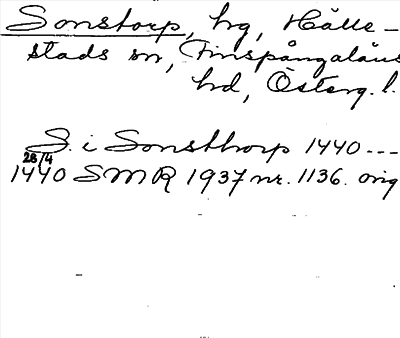 Sonstorp, hg, Hälle-
stads sn, Finspångaläns
hd, Österg. l.
S. i Sonsthorp 1440 ---
28/4
1440 SMR 1937 nr. 1136. orig